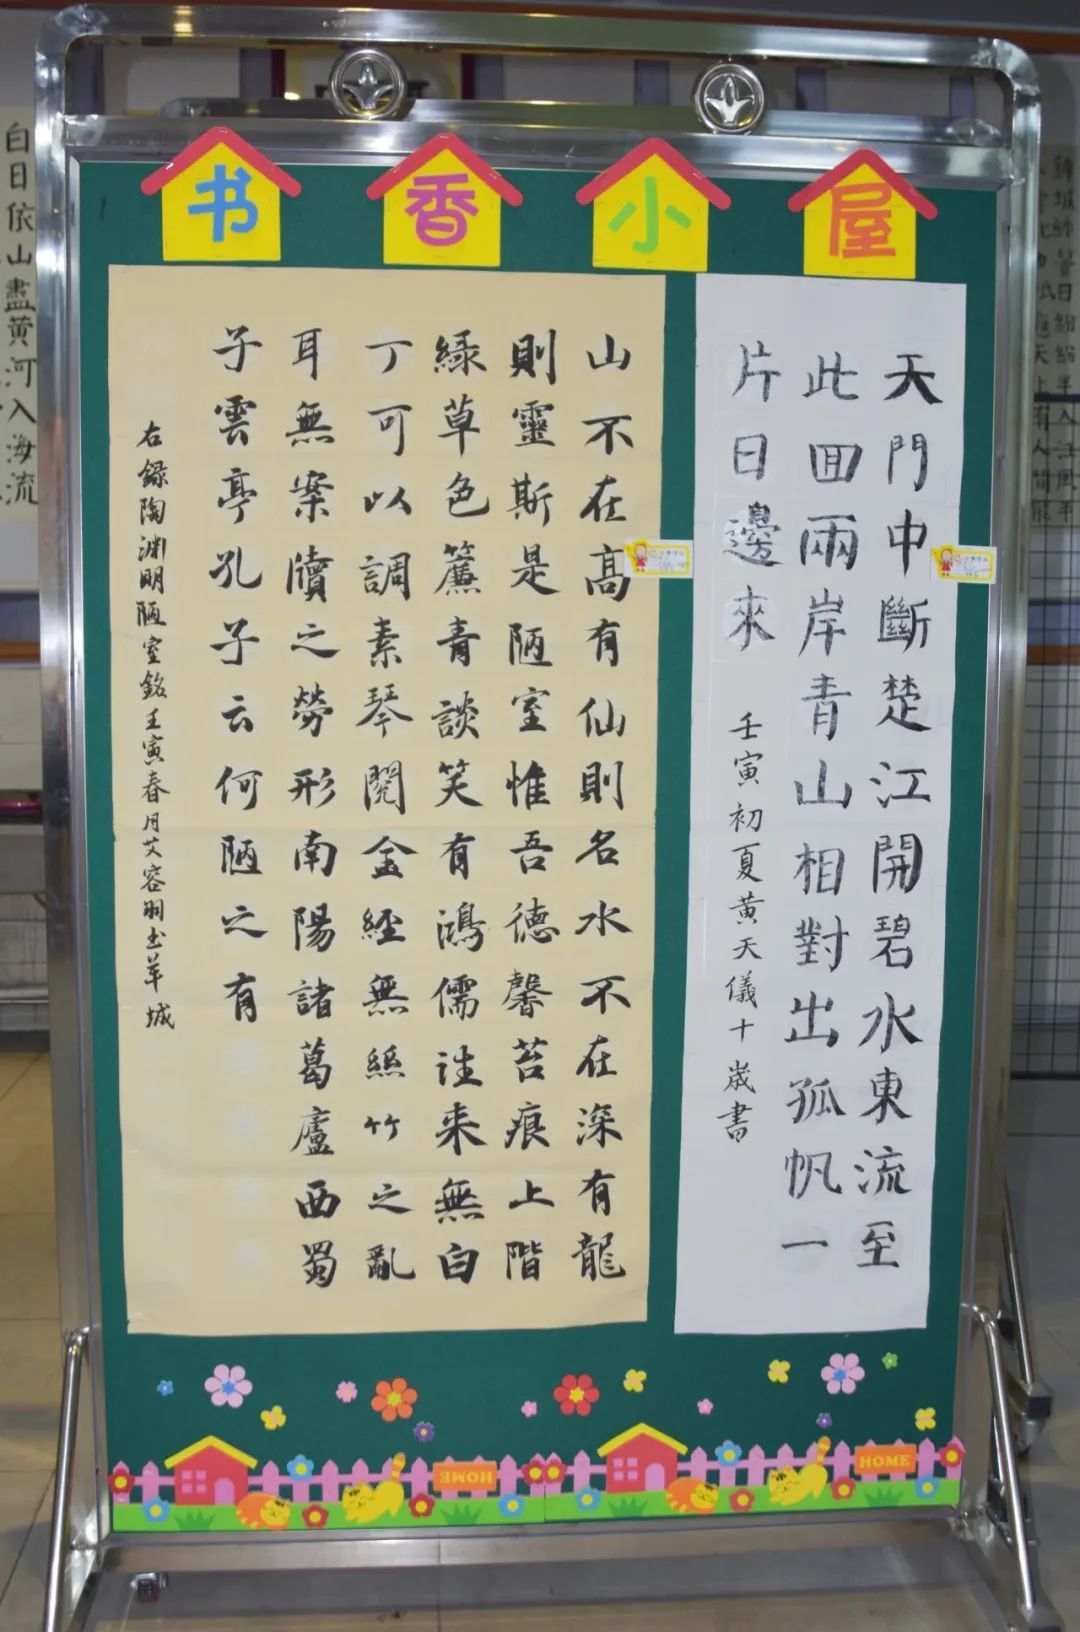 书香小屋
天門中斷楚江開碧水東流至
此回兩岸青山相對出孤帆一
片日邊來
壬寅初夏黃天儀十歲書
山不在高有仙則名水不在深有龍
則靈斯是陋室惟吾德馨苔痕上階
綠草色簾青談笑有鴻儒往来無白
丁可以調素琴閱金經無絲竹之亂
耳無案牘之勞形南陽諸葛廬西蜀
子雲亭孔子云何陋之有
右錄陶淵明陋室銘壬寅春月艾容羽书羊城
白日依山盡黄河入海流
錦城絲管日紛紛半入江風半
天上有人間能
HOME
HOME